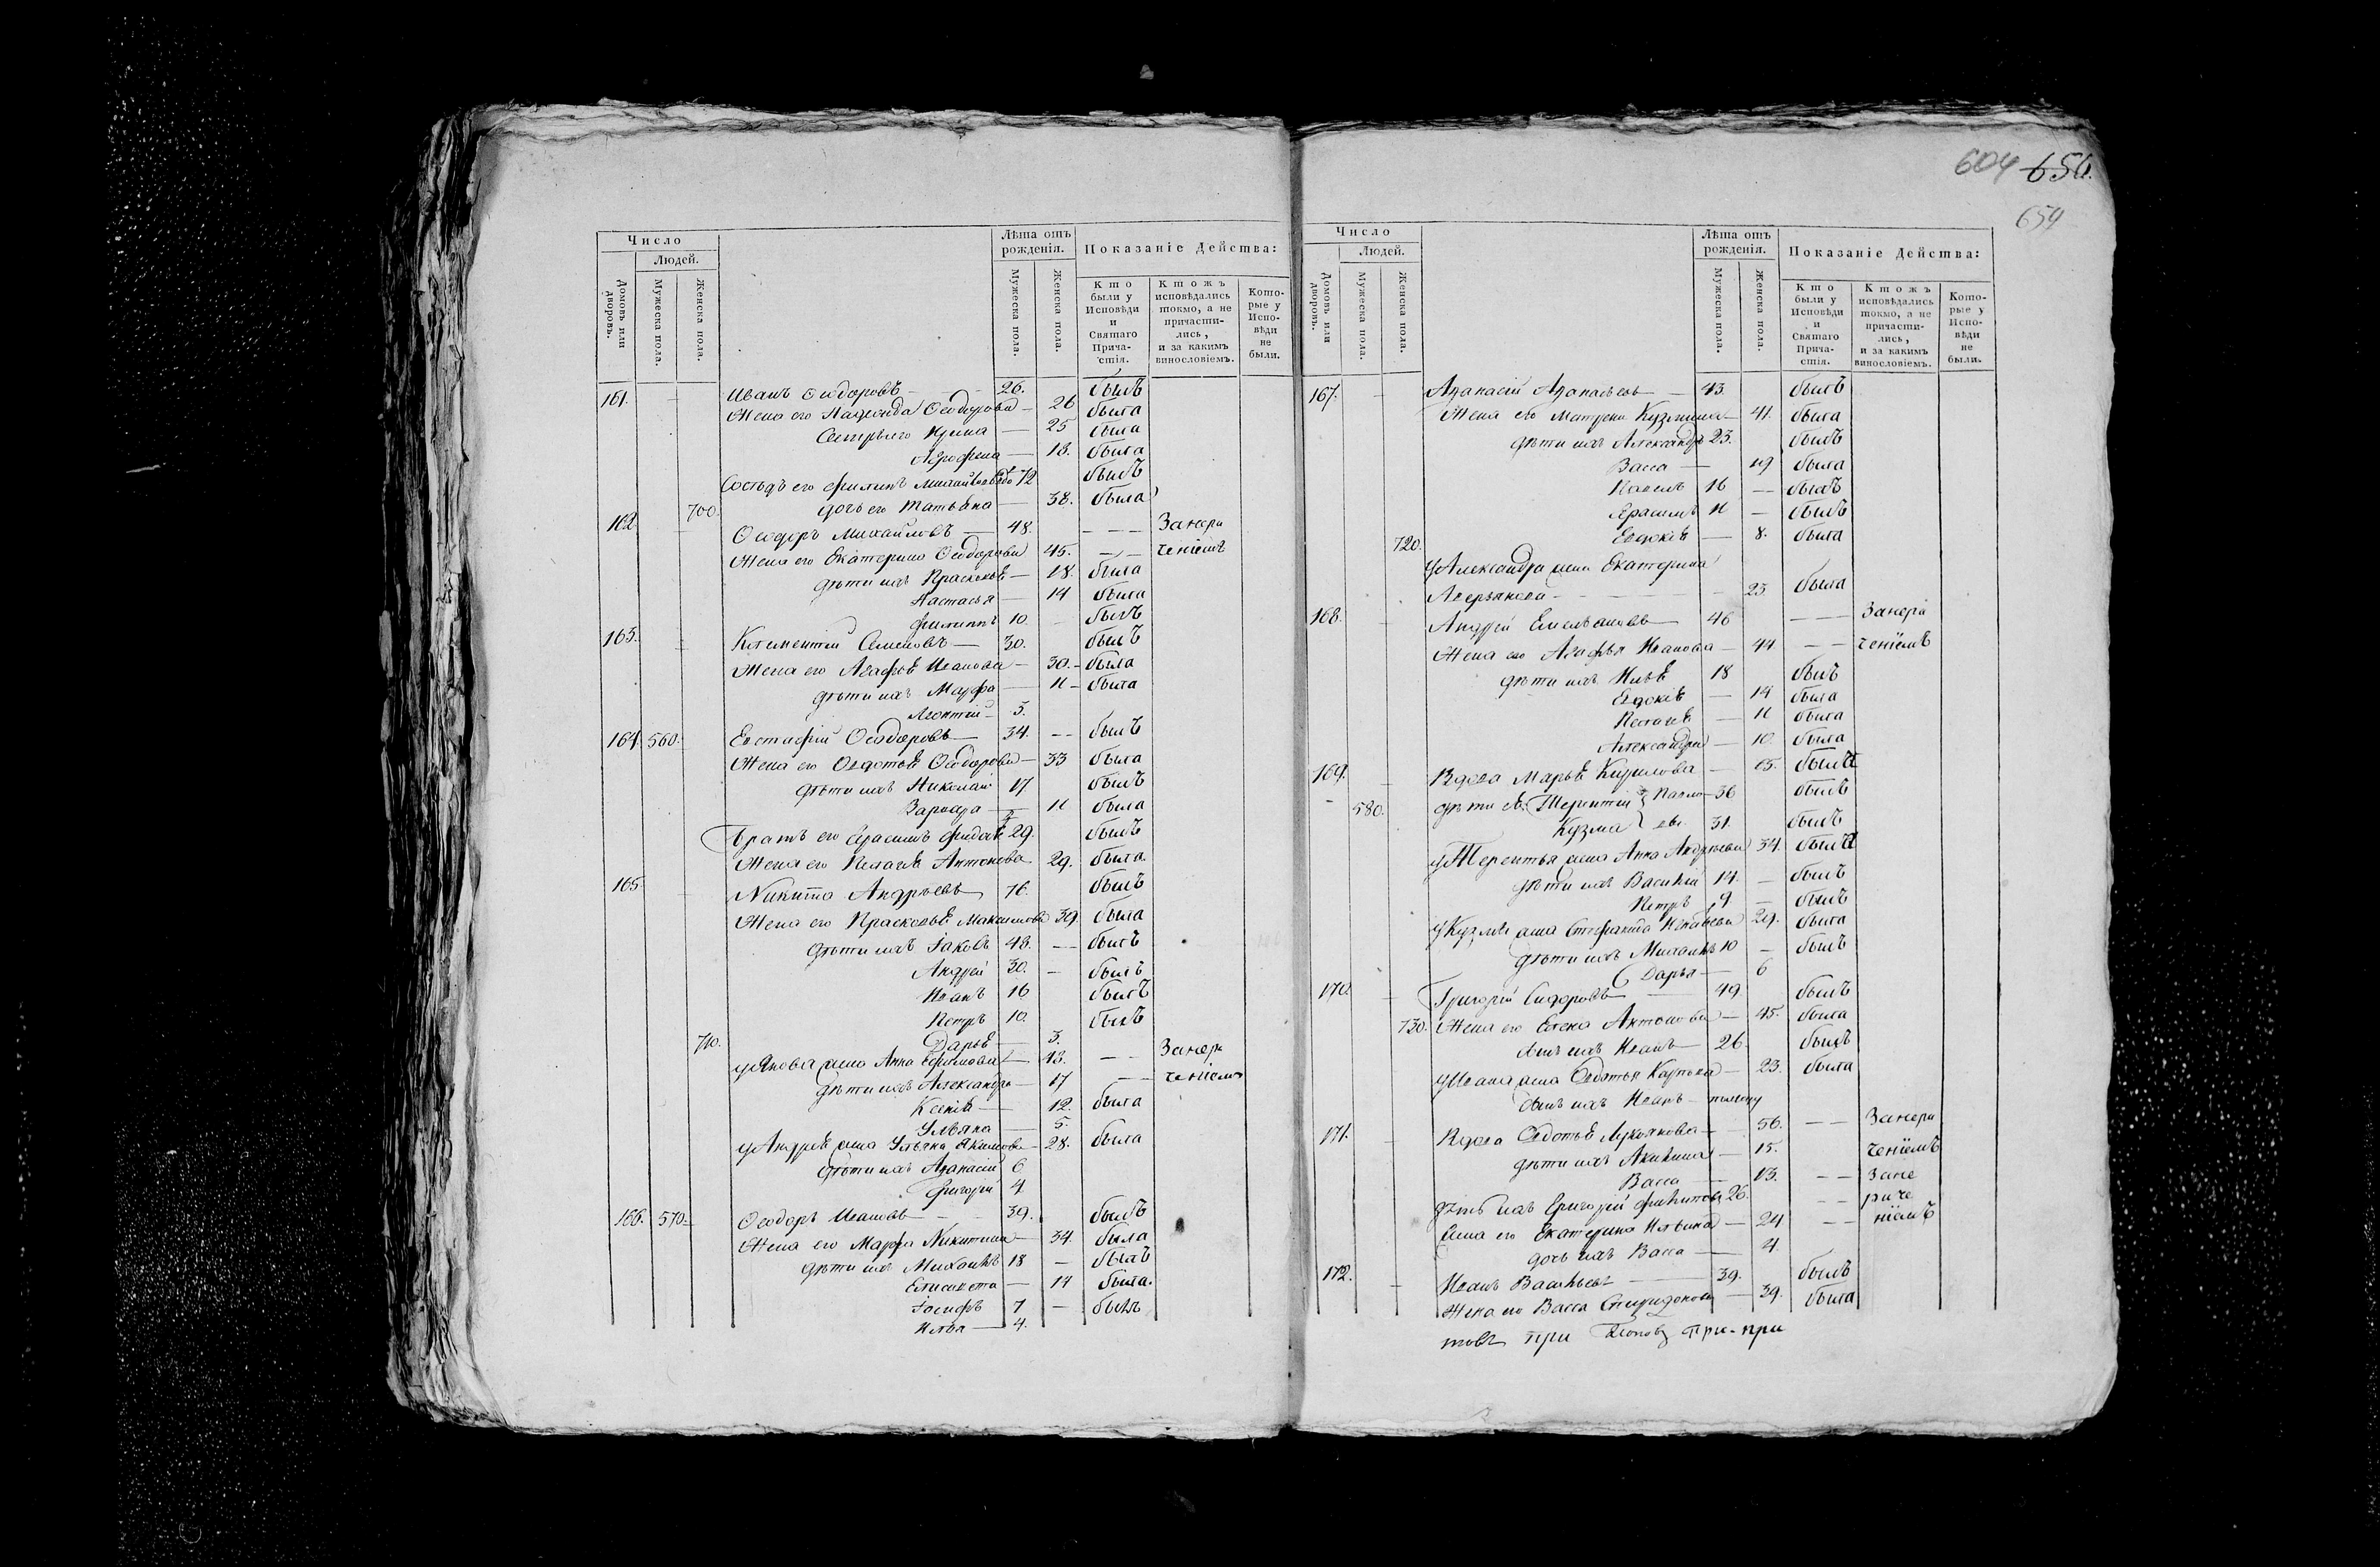 604 656.
654
Число
Людей.
Домовъ или дворовъ.
Мужеска пола.
Женска пола.
Лѣта отъ рожденія.
Мужеска пола.
Женска пола.
Показаніе Действа:
Кто были у Исповѣди и Святаго Причастія.
Ктожъ исповѣдались токмо, а не причастились, и за какимъ винословіемъ.
Которые у Исповѣди не были.
161. Иванъ Ѳедоровъ 26. былъ
Жена его Ѳеодорова 26 была
Сестры его Ирина 25 была
Агрофена 18. была
Сосѣдъ его Филипъ 72 былъ
700. дочь его Татьяна 38. была
162. Ѳеодоръ Михайловъ 48. Занера
Жена его Екатерина Ѳеодорова 45. ченіемъ
дѣти ихъ Прасковья 18. была
Настасья 14 была
Филиппъ 10. былъ
163. Климентій Семеновъ 30. былъ
Жена его Агафья Иванова 30. была
дѣти ихъ Марфа 11 была
Леонтій 3.
164. 560. Евстафій Ѳеодоровъ 34. былъ
Жена его Ѳедотья Ѳеодорова 33 была
дѣти ихъ Николай 17 былъ
Варвара 11 была
Братъ его Герасимъ 29. былъ
Жена его Пелагея Антонова 29. была
165. Никита Андрѣевъ 76. былъ
Жена его Прасковья Максимова 39. была
дѣти ихъ Іаковъ 48. былъ
Андрей 30. былъ
Иванъ 16 былъ
Петръ 10. былъ
710. Дарья 3.
у Якова жена Анна Ефимова 43. Занера
дѣти ихъ Александра 17 ченіемъ
Ксенія 12. была
Ульяна 5.
у Андрея жена Ульяна Якимова 28. была
дѣти ихъ Аѳанасій 6
Григорій 4
166. 570. Ѳеодоръ Ивановъ 39. былъ
Жена его Марфа Никитина 34. была
дѣти ихъ Михаилъ 18 былъ
Елисавета 14 была.
Іосифъ 7 былъ
Илья 4.
Число
Людей.
Домовъ или дворовъ.
Мужеска пола.
Женска пола.
Лѣта отъ рожденія.
Мужеска пола.
Женска пола.
Показаніе Действа:
Кто были у Исповѣди и Святаго Причастія.
Ктожъ исповѣдались токмо, а не причастились, и за какимъ винословіемъ.
Которые у Исповѣди не были.
167. Аѳанасій Аѳанасьевъ 43. былъ
Жена его Матрена Кузмина 41. была
дѣти ихъ Александръ 23. былъ
Васса 19 была
Павелъ 16 былъ
Герасимъ 11 былъ
720. Евдокія 8. была
у Александра жена Екатерина
Аверьянова 23 была
168. Андрей Емельановъ 46 Занера
Жена его Агафья Иванова 44 ченіемъ
дѣти ихъ Илья 18 былъ
Евдокія 14 была
Пелагея 11 была
Александра 10. была
169. Вдова Марья Кирилова 65. была
580. дѣти ея Терентій Павло 36 былъ
Кузма вы 31. былъ
у Терентья жена Анна Андрѣева 34. была
дѣти ихъ Василій 14. былъ
Петръ 9 былъ
у Кузмы жена Стефанида 29. была
дѣти ихъ Михаилъ 10 былъ
Дарья 6
170. Григорій Сидоровъ 49. былъ
730. Жена его Елена Антонова 45. была
сынъ ихъ Иванъ 26. былъ
у Ивана жена Ѳедотья Карпова 23. была
сынъ ихъ Иванъ полгоду
171. Вдова Ѳедотья Лукоянова 56. Занера
дѣти ихъ Акилина 15. ченіемъ
Васса 13. Зане
зять ихъ Григорій Филипов 26. раче
Жена его Екатерина Ильина 24 ніемъ
дочь ихъ Васса 4.
172. Иванъ Васильевъ 39. былъ
Жена его Васса Спиридонова 39. была
при при-при